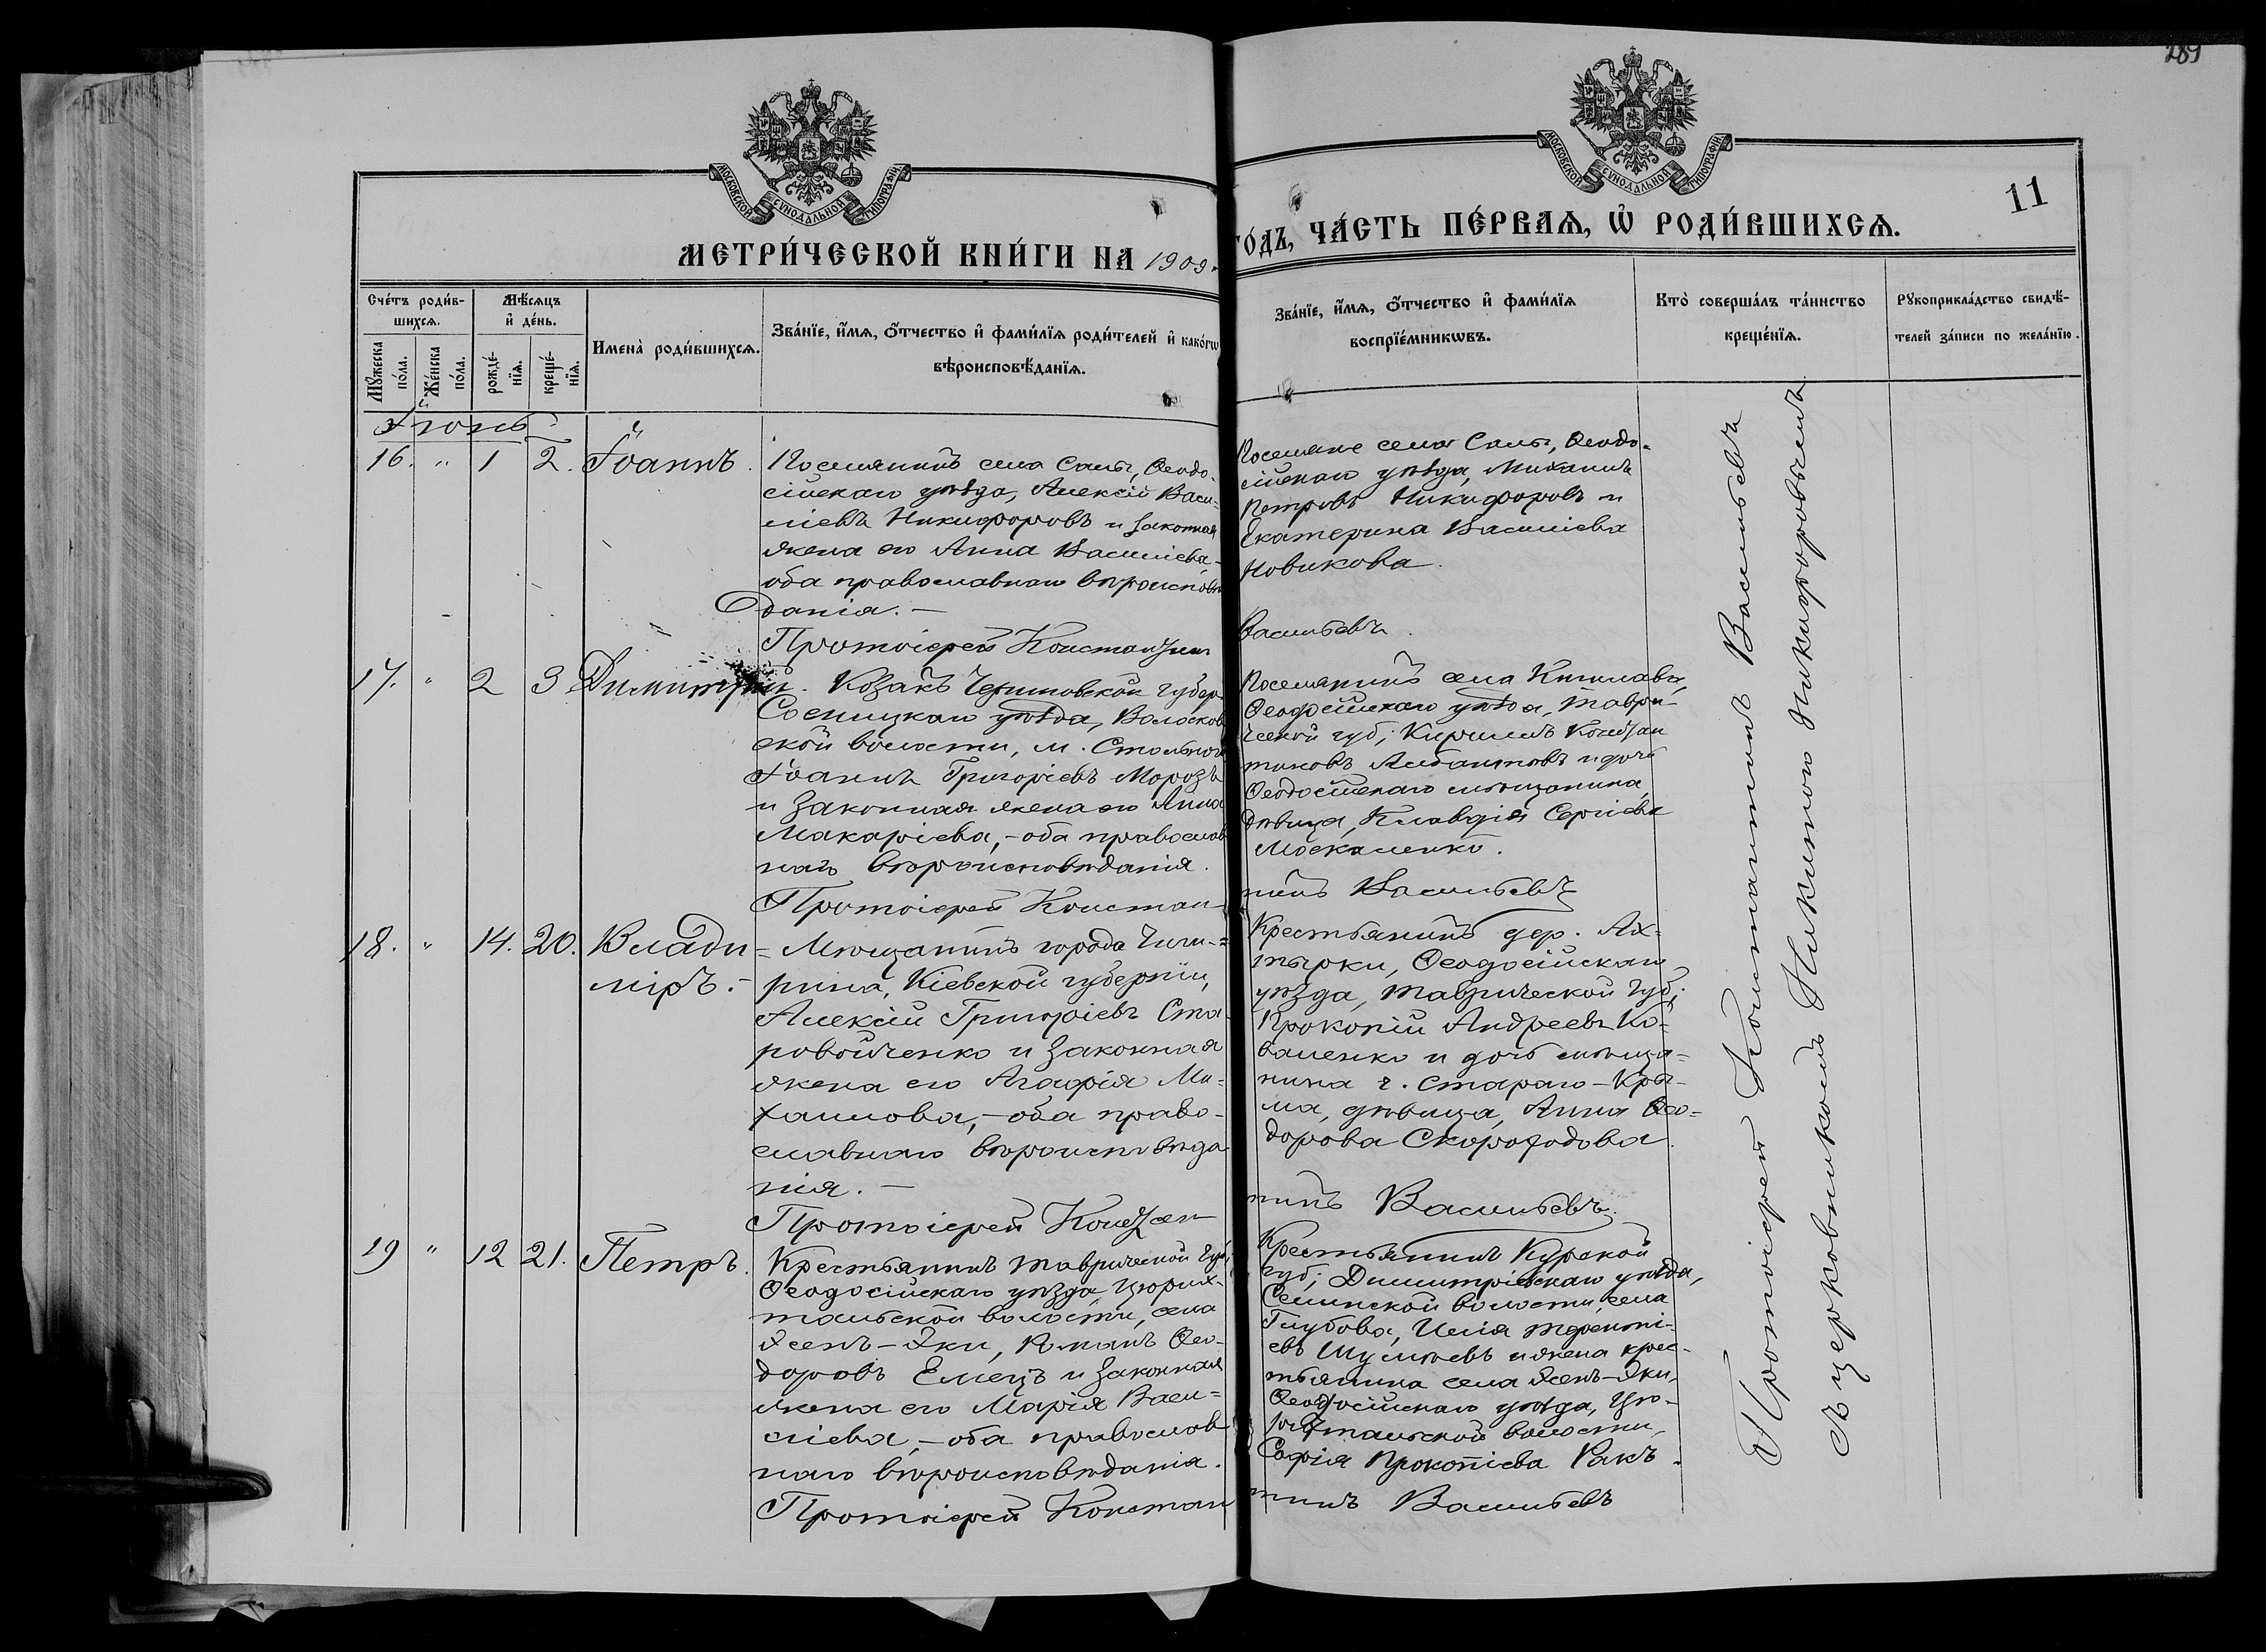 289
11
МОСКОВСКОЙ СѴНОДАЛЬНОЙ ТИПОГРАФІИ
МОСКОВСКОЙ СѴНОДАЛЬНОЙ ТИПОГРАФІИ
МЕТРИ́ЧЕСКОЙ КНИ́ГИ НА 1909
ГО́ДЪ, ЧА́СТЬ ПЕ́РВАѦ, Ѽ РОДИ́ВШИХСѦ.
Сче́тъ роди́в-
шихсѧ.
Мꙋ́жеска по́ла.
Же́нска по́ла.
Мѣ́сѧцъ
и҆ де́нь.
рожде́-
нїѧ.
креще́-
нїѧ.
Имена̀ роди́вшихсѧ.
Зва́нїе, и҆́мѧ, ѻ҆́тчество и҆ фами́лїѧ роди́телей и҆ како́гѡ
вѣроисповѣ́данїѧ.
Зва́нїе, и҆́мѧ, ѻ҆́тчество и҆ фами́лїѧ
воспрїе́мникѡвъ.
Кто̀ соверша́лъ та́инство
креще́нїѧ.
Рꙋкоприкла́дство свидѣ́-
телей за́писи по жела́нїю.
Іюнь
16. " 1 2. Іоаннъ.
Поселянинъ села Салы, Ѳеодо-
сійскаго уѣзда, Алексій Васи-
ліевъ Никифоровъ и законная
жена его Анна Василіева-
оба православнаго вѣроисповѣ
данія. –
Поселяне села Салы, Ѳеодо-
сійскаго уѣзда, Михаилъ
Петровъ Никифоровъ и
Екатерина Василіева
Новикова.
Протоіерей Константинъ Васильевъ.
17. " 2 3 Димитрій.
Козакъ Черниговской губер
Сосницкаго уѣзда, Волосков
ской волости, м. Стольнаго
Іоаннъ Григоріевъ Морозъ
и законная жена его Анна
Макаріева, – оба православ
наго вѣроисповѣданія.
Поселянинъ села Кишлавъ,
Ѳеодосійскаго уѣзда, Таври-
ческой губ; Кириллъ Констан
тиновъ и дочь
Ѳеодосійскаго мѣщанина,
дѣвица, Клавдія Сергіева
Москаленко.
Протоіерей Констан-
тинъ Васильевъ
18. " 14. 20. Влади=
міръ. –
Мѣщанинъ города Чиги-=
рина, Кіевской губерніи,
Алексій Григоріевъ Ста-
ровойченко и законная
жена его Агафія Ми=
хаилова, – оба право-
славнаго вѣроисповѣда
нія. –
Крестьянинъ дер. Ах=
тырки, Ѳеодосійскаго
уѣзда, Таврической губ;
Прокопій Андреевъ Ко-
валенко и дочь мѣща=
нина г. Стараго-Кры-
ма, дѣвица, Анна Ѳео=
дорова Скороходова.
Протоіерей Констан-
тинъ Васильевъ.
19 " 12 21. Петръ.
Крестьянинъ Таврической губ;
Ѳеодосійскаго уѣзда, Цюрих-
тальской волости, села
Романъ Ѳео-
доровъ Емецъ и законная
жена его Марія Васи=
ліева, – оба православ
наго вѣроисповѣданія.
Крестьянинъ Курской
губ; Димитріевскаго уѣзда,
волости, села
Глубова, Илія Терентi-
евъ и жена крес-
тьянина села
Ѳеодосійскаго уѣзда, Цю-
рихтальской волости,
Софія Прокопіева Ракъ.
Протоіерей Констан
тинъ Васильевъ
Протоіерей Константинъ Васильевъ
съ церковникомъ Никитою Никифоровымъ